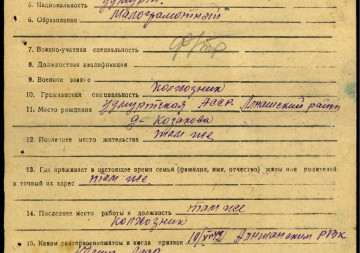 5. Национальность удмурт.
6. Образование малограмотный
7. Военно-учетная специальность
8. Должностная квалификация
9. Военное звание
10. Гражданская специальность колхозник
11. Место рождения Удмуртская АССР.
д- Козаково
12. Последнее место жительства там же
13. Где проживает в настоящее время семья (фамилия, имя, отчество) жены или родителей
и точный их адрес там же
14. Последнее место работы и должность там же
колхозник
15. Каким райвоенкоматом и когда призван